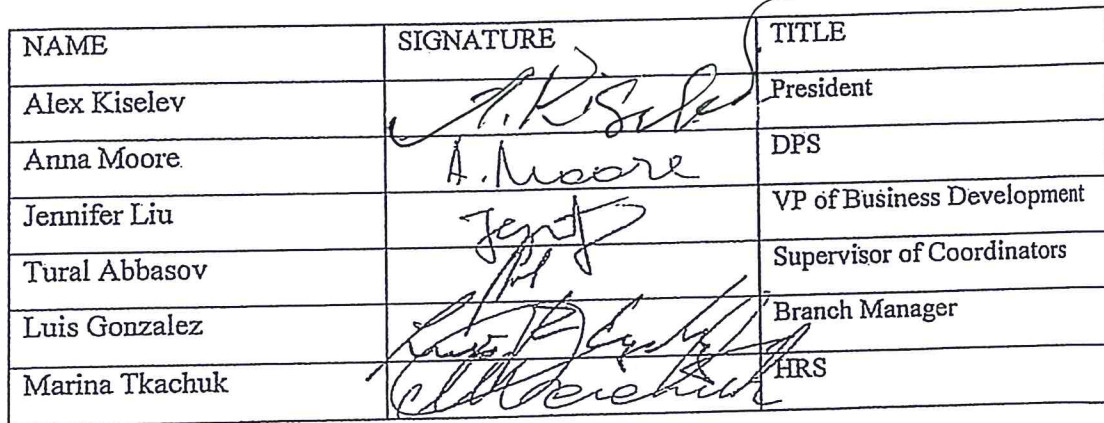 NAME SIGNATURE TITLE
Alex Kiselev A. Kisele President
Anna Moore. A. Moore DPS
Jennifer Liu VP of Business Development
Tural Abbasov Supervisor of Coordinators
Luis Gonzalez Branch Manager
Marina Tkachuk HRS